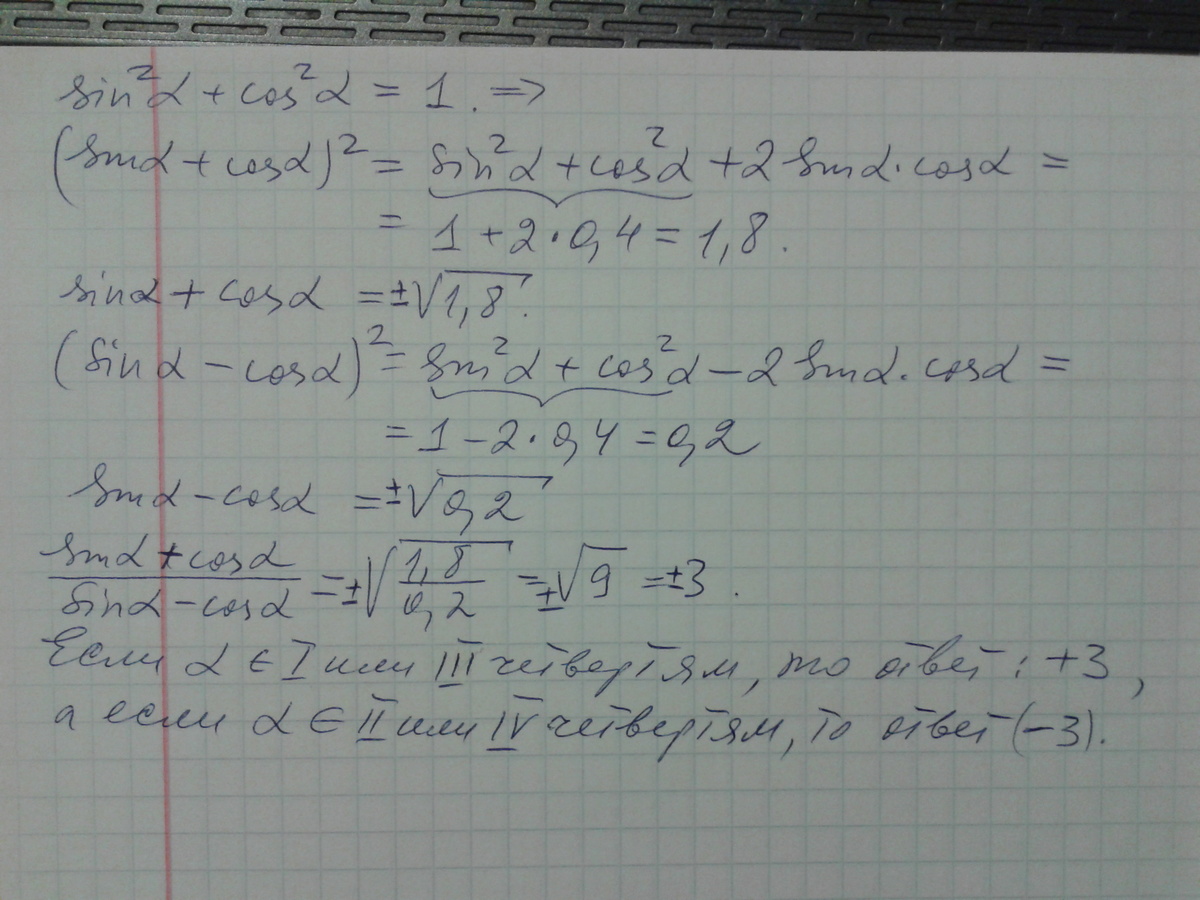 sin²α + cos²α = 1. ⇒
(sinα + cosα)² = sin²α + cos²α + 2 sinα · cosα =
= 1 + 2 · 0,4 = 1,8.
sinα + cosα = ±√1,8.
(sinα − cosα)² = sin²α + cos²α − 2 sinα · cosα =
= 1 − 2 · 0,4 = 0,2
sinα − cosα = ±√0,2
(sinα + cosα)/(sinα − cosα) = ±√(1,8/0,2) = ±√9 = ±3.
Если α ∈ I или III четвертям, то ответ: +3,
а если α ∈ II или IV четвертям, то ответ (−3).